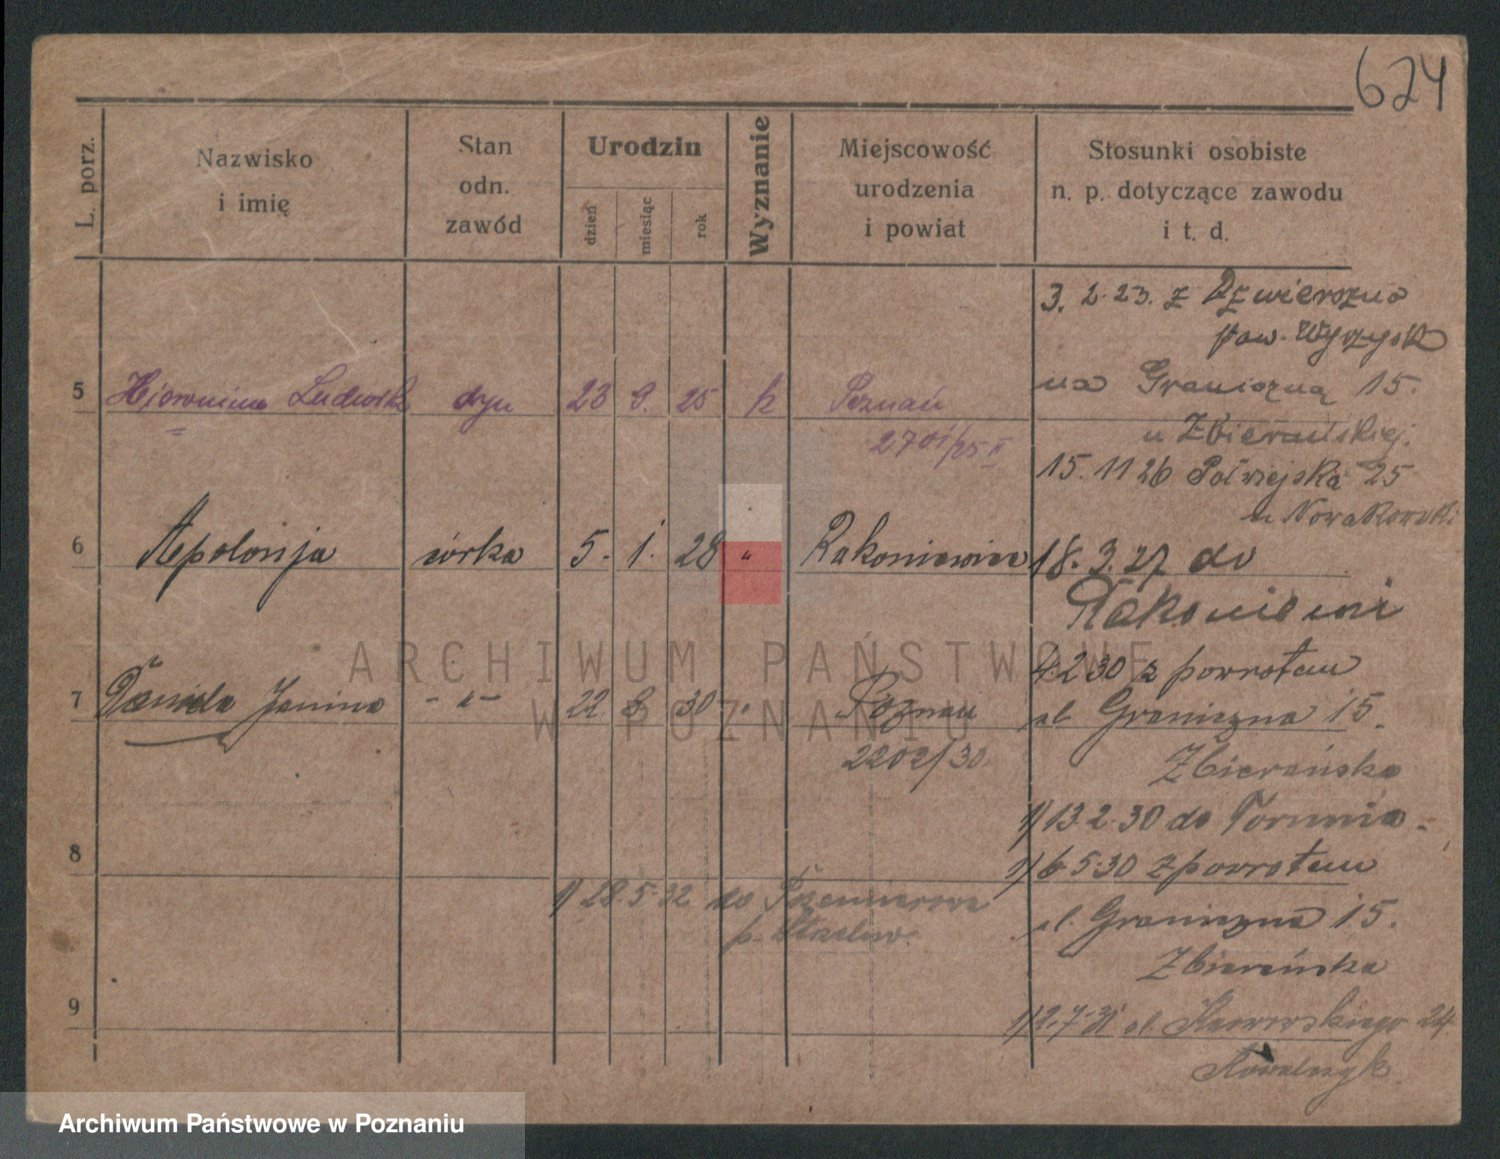 624
L. porz.
Nazwisko
i imię
Stan
odn.
zawód
Urodzin
dzień
miesiąc
rok
Wyznanie
Miejscowość
urodzenia
i powiat
Stosunki osobiste
n. p. dotyczące zawodu
i t. d.
3. 2. 23. z Dźwierszna
pow. Wyrzysk
5 Hjeronim Ludwik syn 23 9. 25 k Poznań
2701/25 II
na Graniczną 15.
u Zbierańskiej.
15. 11 26 Półwiejska 25
u Nowakowski
6 Apolonja córka 5. 1. 28 " Rakoniewice
18. 3. 27 do
Rakoniewic
4.2 30 z powrotem
7 Daniela Janina - " - 22 8 30 " Poznań
2202/30
ul. Graniczna 15.
Zbierańska
1) 13. 2. 30 do Torunia.
8
1) 6 5 30 z powrotem
1) 28. 5 32 do
p.
ul. Graniczna 15.
Zbierańska
9
1) 2. 7. 31 ul. 24
Kowalczyk
ARCHIWUM PAŃSTWOWE
W POZNANIU
Archiwum Państwowe w Poznaniu